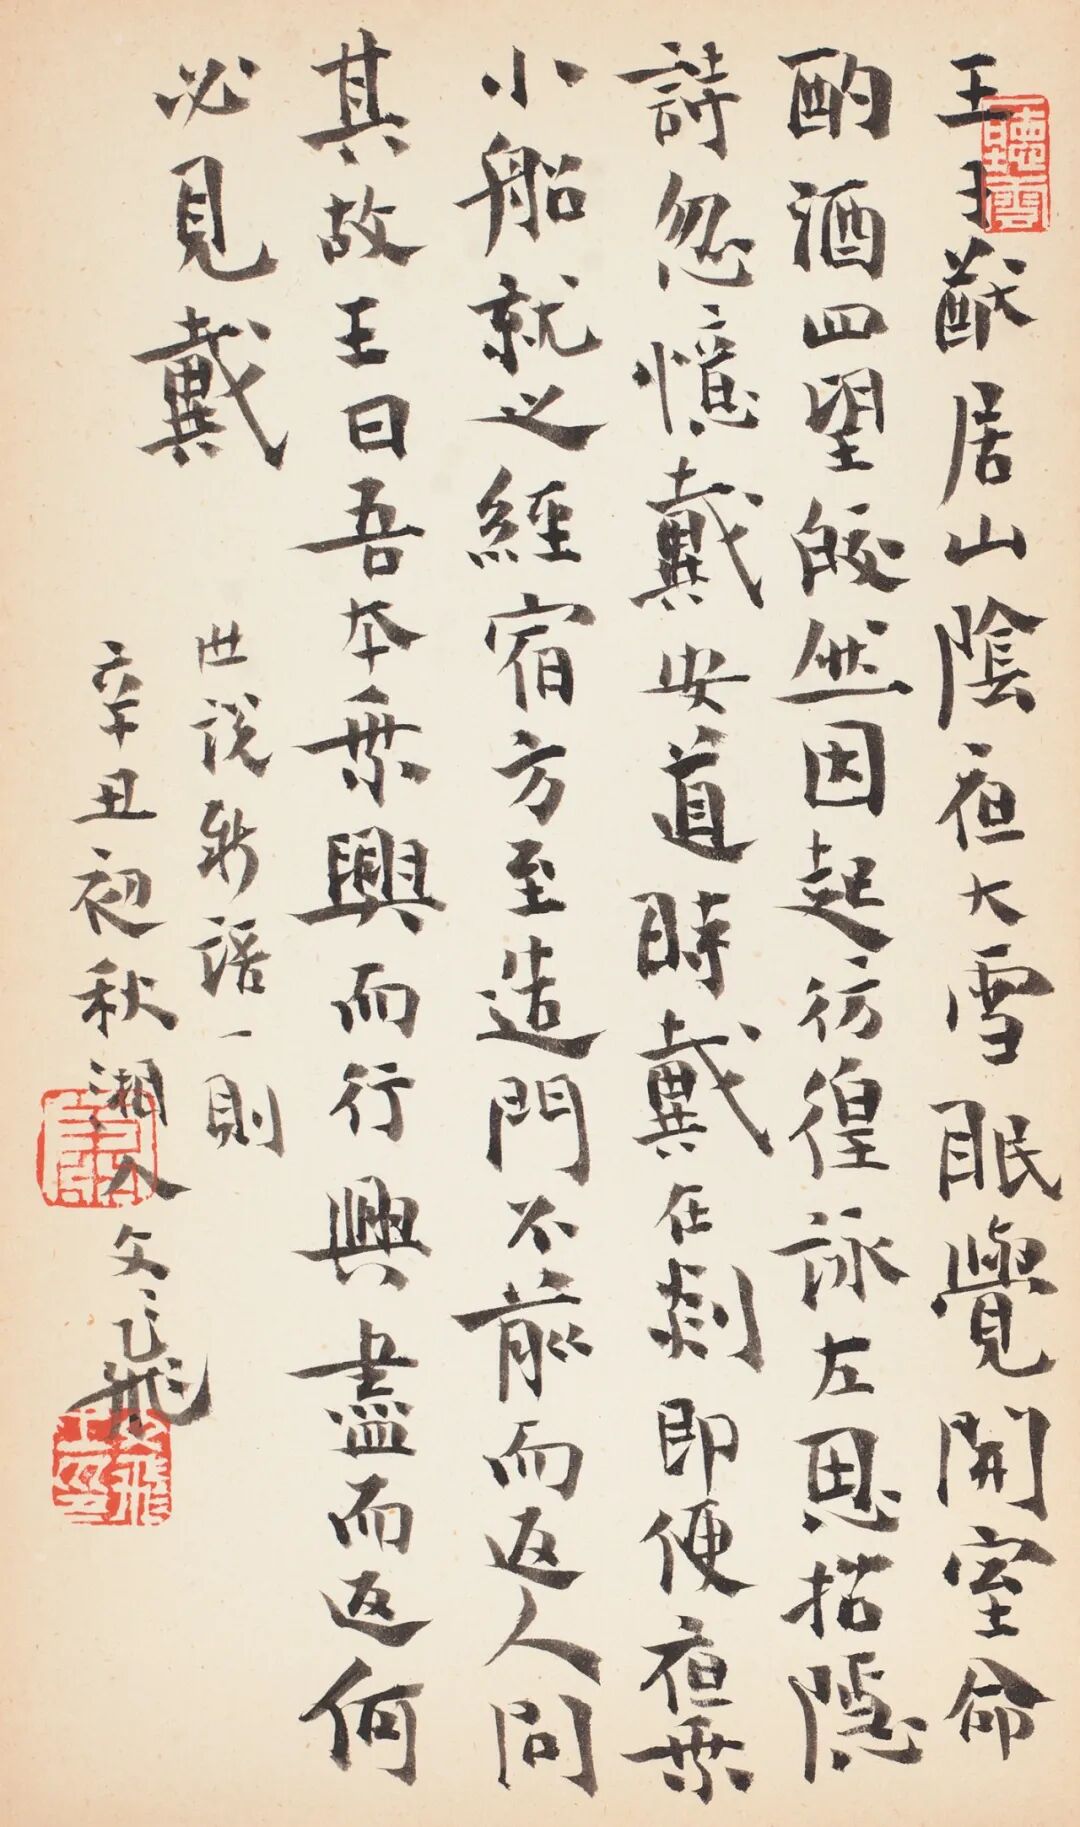 王子猷居山陰夜大雪眠覺開室命
酌酒四望皎然因起彷徨詠左思招隱
詩忽憶戴安道時戴在剡即便夜乘
小船就之經宿方至造門不前而返人問
其故王曰吾本乘興而行興盡而返何
必見戴
世說新語一則
辛丑初秋湘人文飛